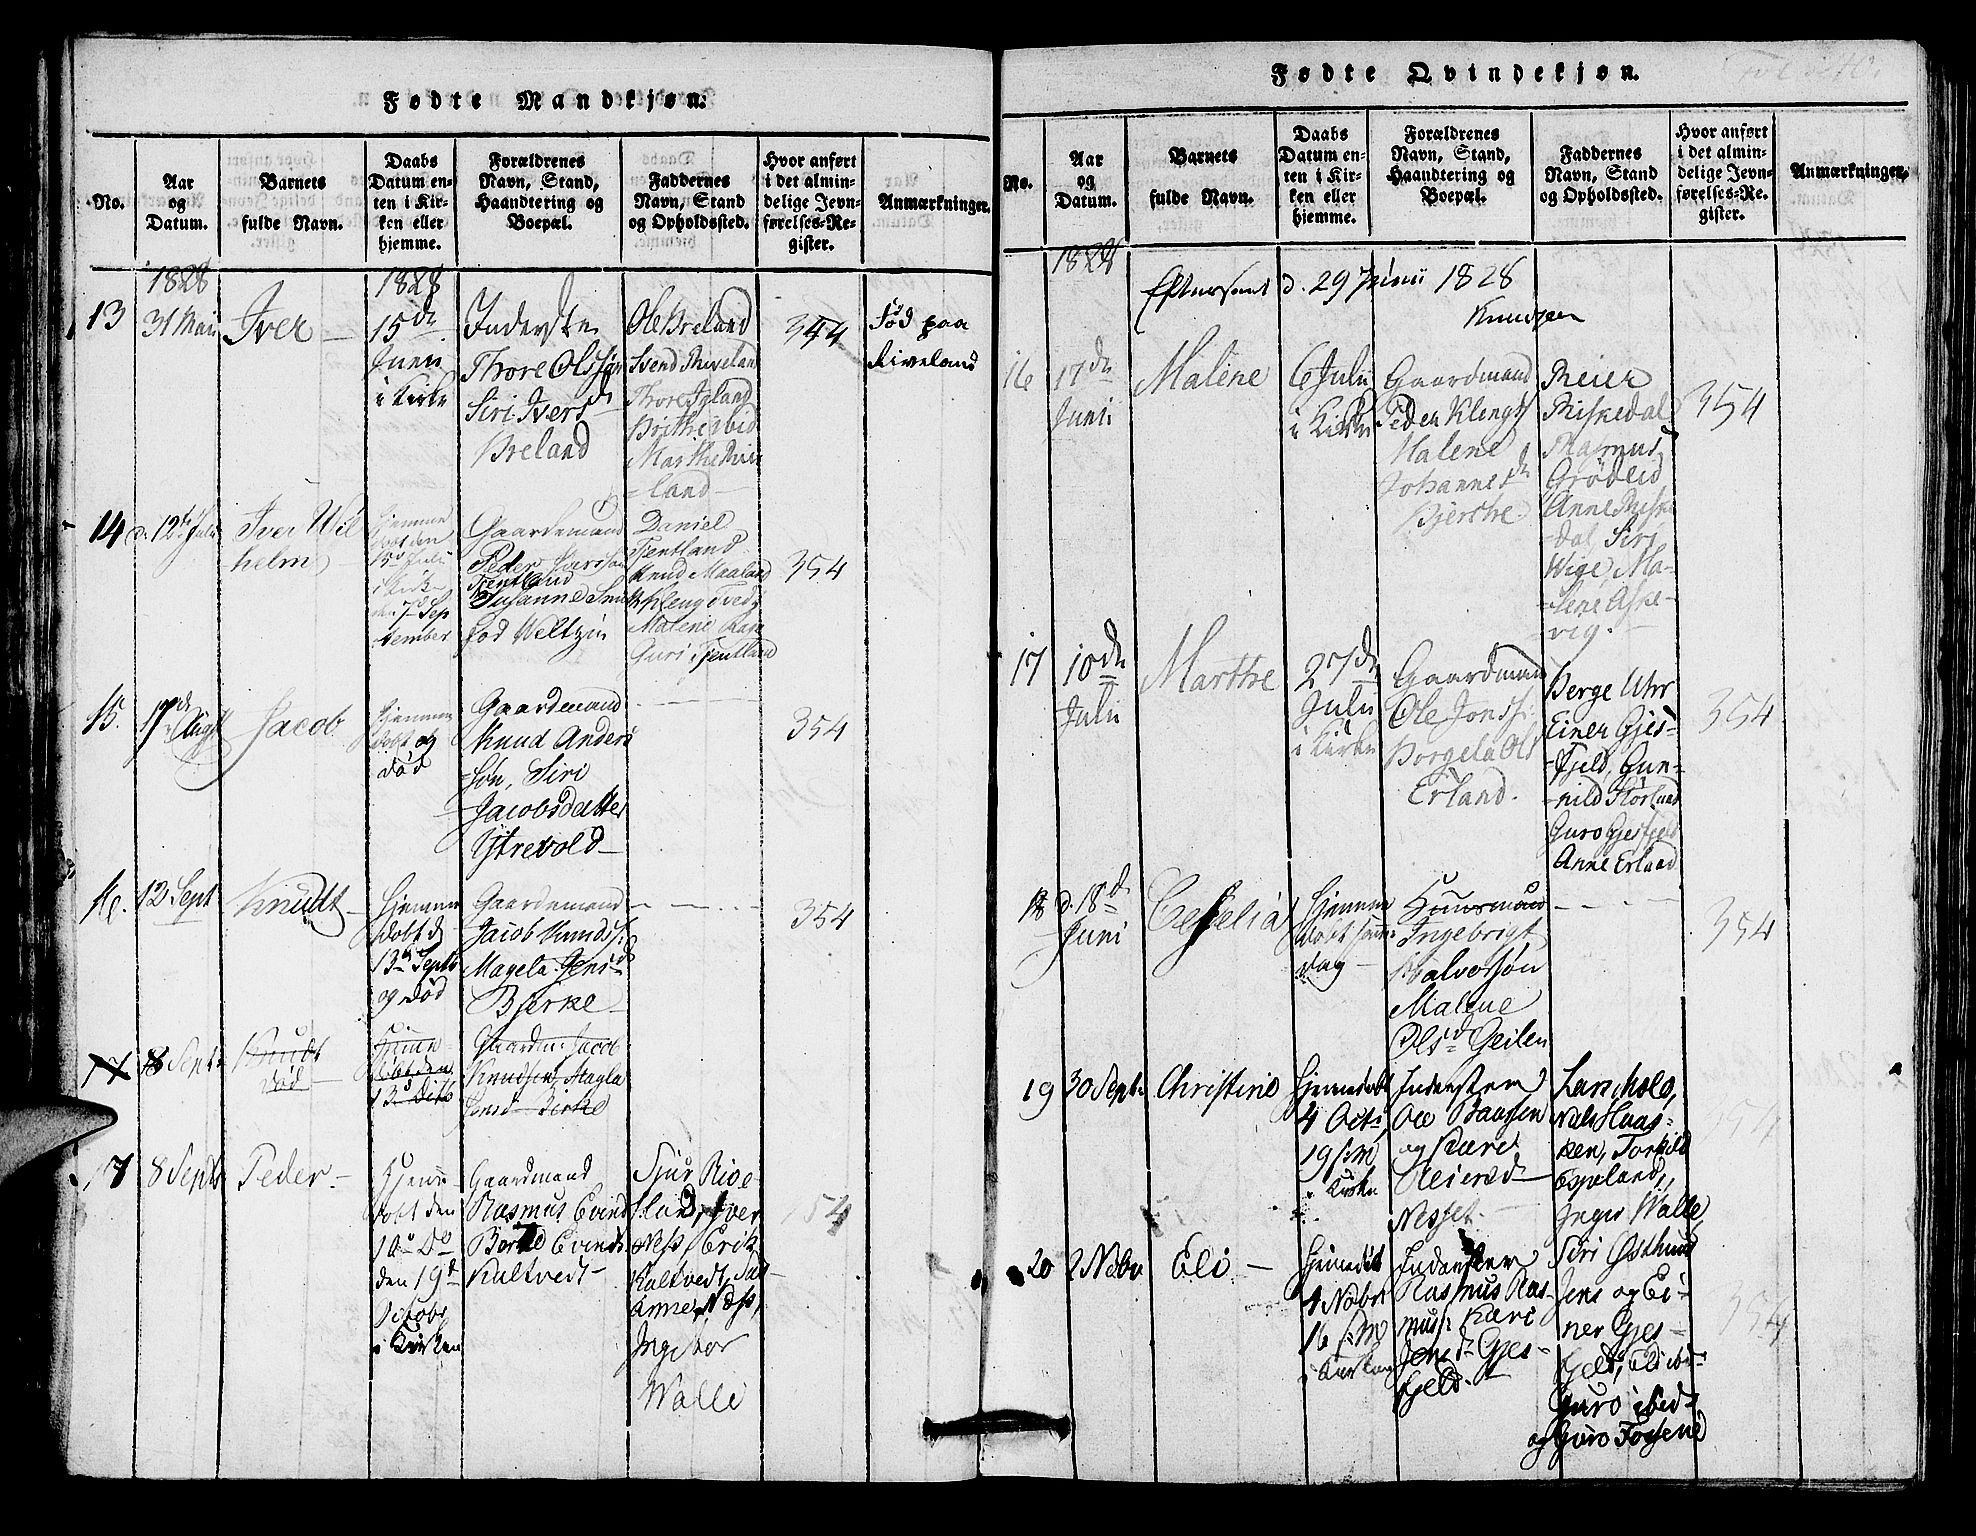 Fødte Mandkjøn.
No.
Aar
og
Datum.
Barnets
fulde Navn.
Daabs
Datum en-
ten i Kir-
ken eller
hjemme.
Forældrenes
Navn, Stand,
Haandtering og
Boepæl.
Faddernes
Navn, Stand
og Opholdssted.
Hvor anført
i det almin-
delige Jevn-
førelses-Re-
gister.
Anmærkninger.
1828
13
31 Maii
Iver
1828
15de
Junii
i Kirke
Inderste
Thore Olssøn
Siri Iversd
Breland
Ole Breland
Svend Riveland
Thore Igland
Brithe ibid
Marthe Rive
=land
344
Fød paa
Riveland
14
d. 12te Juli
Iver Wil
helm
Hjemme
døbt den
15d Juli
i Kirk
d. 7d Sep
tember
Gaardemand
Peder Iversson
Tjentland
Susanne
fød Weltzin
Daniel
Tjentland
Knud Maaland
Kleng Tved
Malene
Guri Tjentland
354
15.
17de Augt
Jacob
Hjemme
døbt og
død
Gaardemand
Knud Anders
=søn, Siri
Jacobsdatter
Ytrevold
354
16.
12 Sept
Knudt
Hjemme
døbt d
13d Septb
og død
Gaardemand
Jacob Knuds:
Magela Jensd
Bjerke
354
17
8 Septr
Knudt
død
Hjeme
døbt den
13d Dito
Gaardm: Jacob
Knudsen, Magla
Jensd Birke
17
8 Septr
Peder
Hjemme
døbt den
10d Do
den 19d
Octobr
i Kirken
Gaardmand
Rasmus Evind
Evinds
Kaltvedt
Sjur Rive
land, Iver
Ness, Erik
Kaltvedt,
Anne Næss,
Ingebor
Walle
354
Fødte Qvindekjøn.
No.
Aar
og
Datum.
Barnets
fulde Navn.
Daabs
Datum en-
ten i Kir-
ken eller
hjemme.
Forældrenes
Navn, Stand,
Haandtering og
Boepæl.
Faddernes
Navn, Stand
og Opholdssted.
Hvor anført
i det almin-
delige Jevn-
førelses-Re-
gister.
Anmærkninger.
1828
Efterseet d. 29 Junii 1828
Knudsen
16
17de
Juni
Malene
6 Julii
i Kirke
Gaardmand
Peder Klengs
Malene
Johannesd
Bjerthe
Reier
Riskedal
Rasmus
Grødeid
Anne Riske
=dal Siri
Wige Ma-
=lene Aske-
=vig.
354
17
10de
Julii
Marthe
27de
Julii
i Kirke
Gaardmand
Ole Jonss:
Borgela Ols
Erland.
Berge Uhr
Einer Gjes=
=fjeld, Gun-
=nild Hørland
Guro Gjesfjeld
Anne Erland
354
18
d. 18d
Juni
Cecelia
Hjemme
døbt samme
dag
Huusmand
Ingebrigt
Halvorsøn
Malene
Olsd Geilen
354
19
30 Septr
Christine
Hjemedøbt
4 Octr,
i Kirke
Inderster
Ole Baardsen
og Kari
Reiersd
Nesset
Lars Molo,
Nils Haas=
ken, Torkild
Espeland,
Inger Walle
Siri Østhuus
354
20
2 Novbr
Eli
Hjemedøbt
4 Novbr
i Kirken
Inderster
Rasmus Ras-
mus: Kari
Jensd Gjes-
fjeld.
Jens og Ei-
ner Gjes-
fjeld, Eli ibid
Guro ibid
og Guro Fossene
354